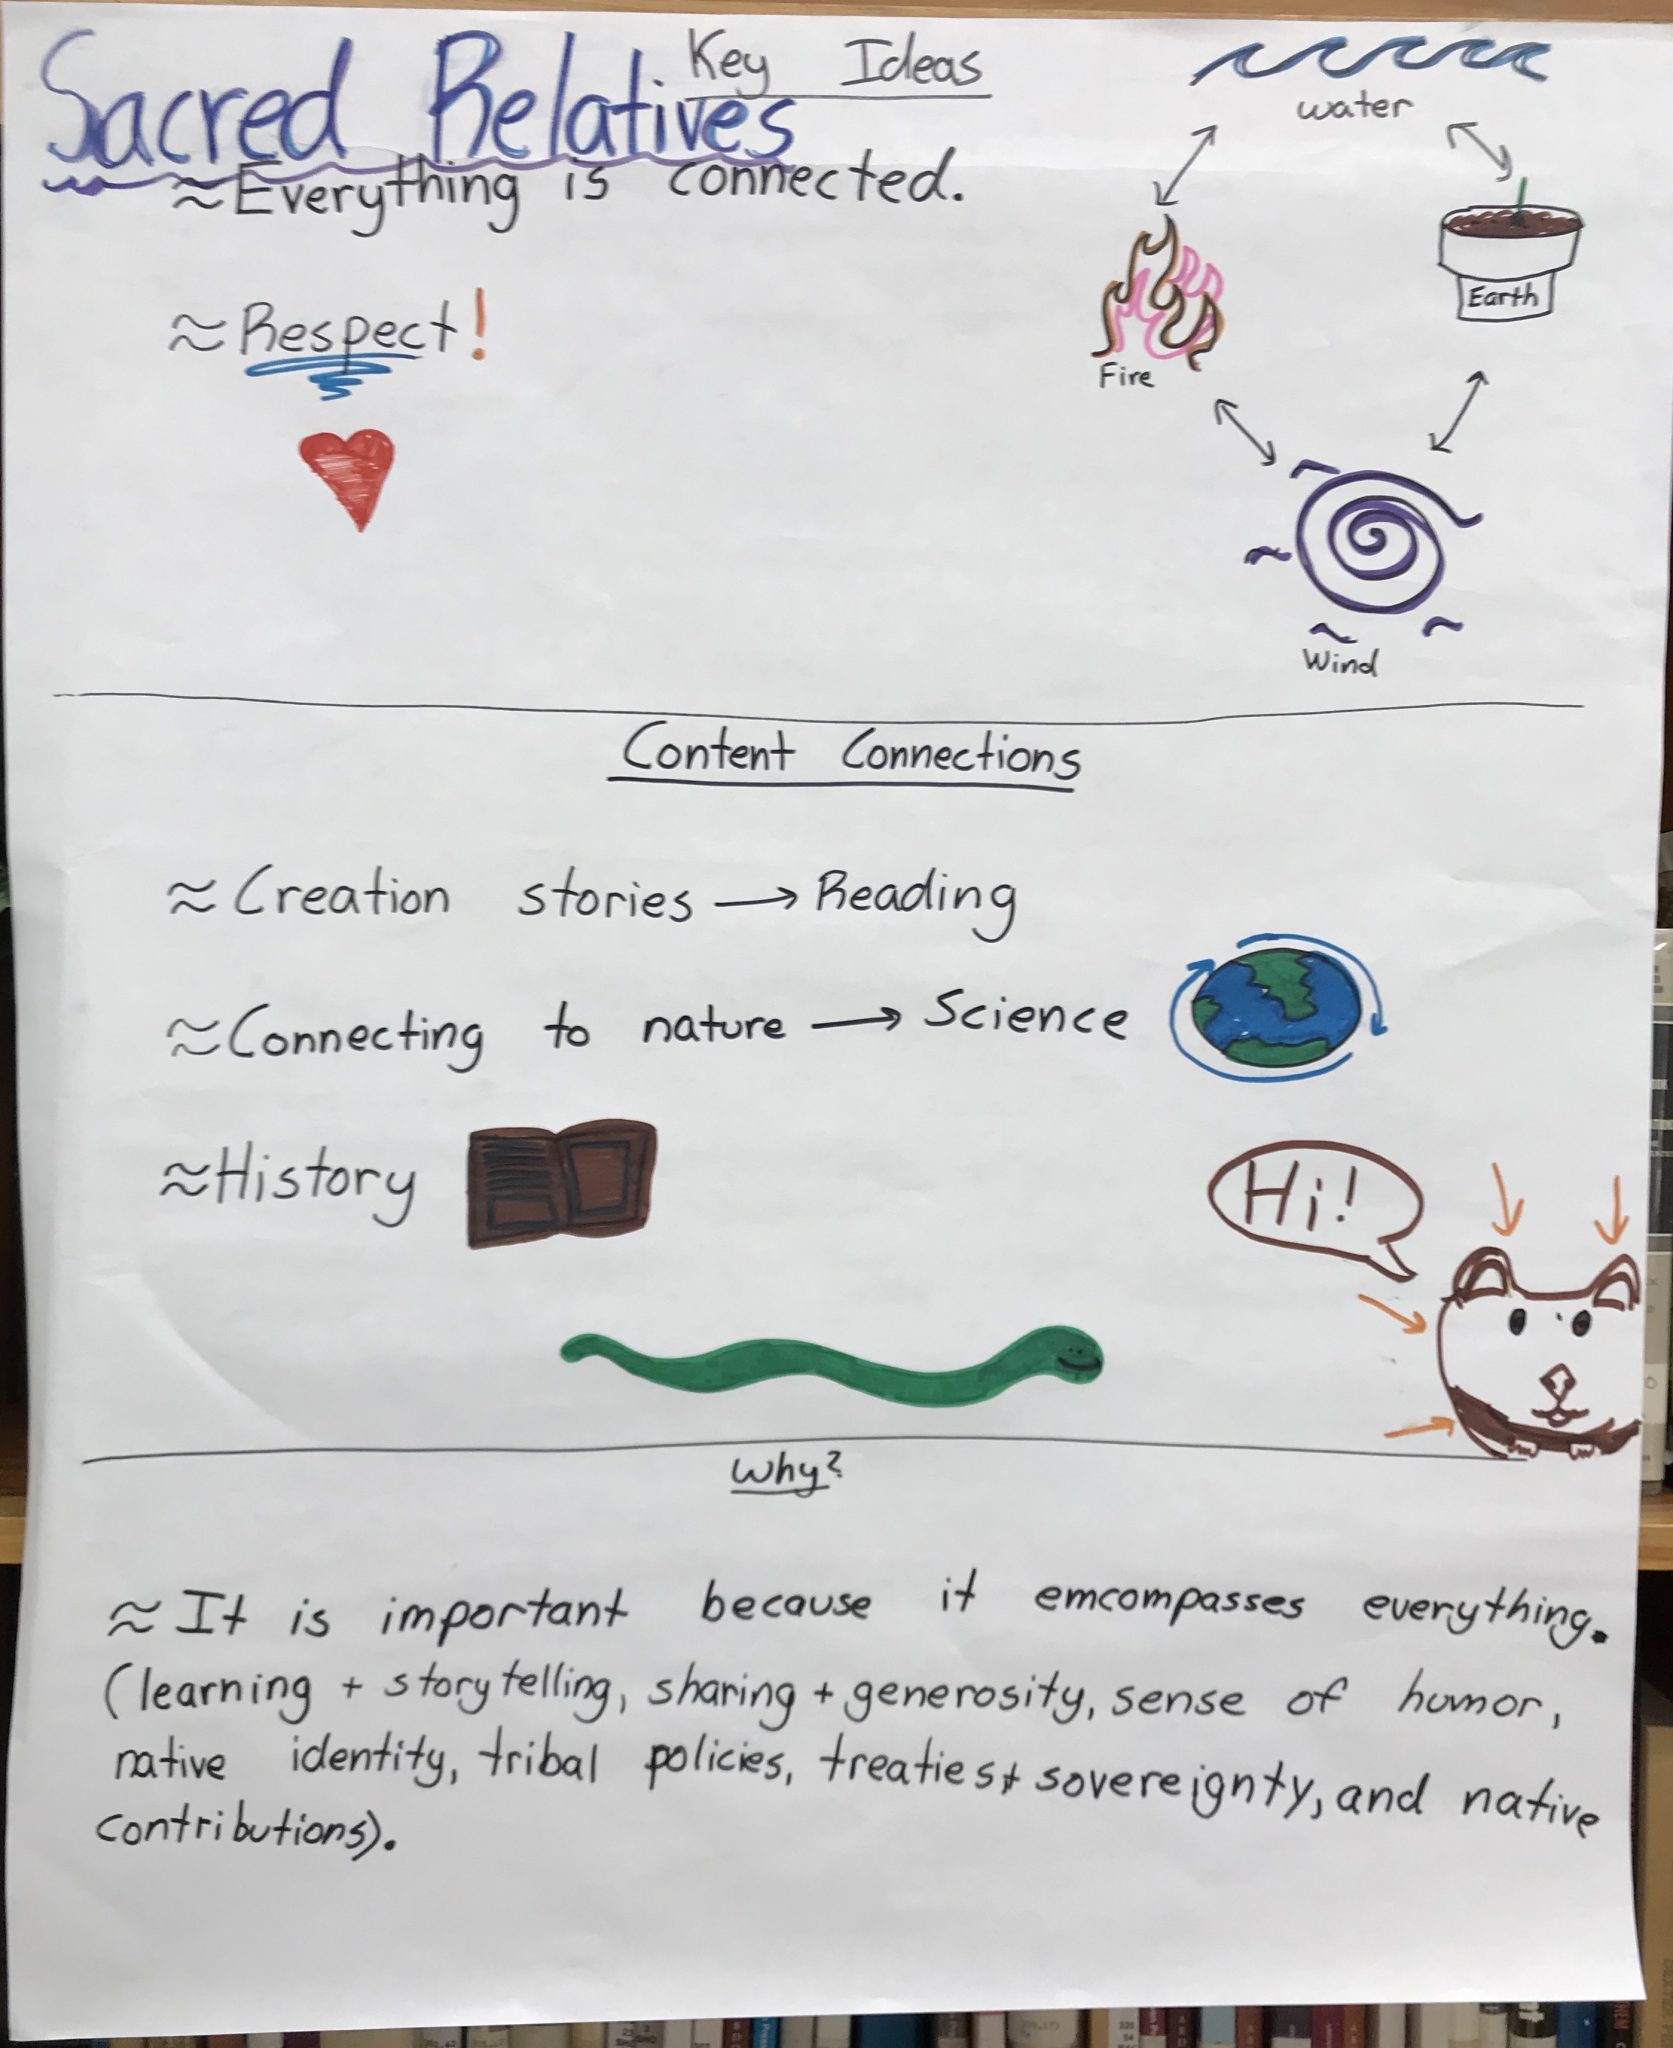 Sacred Relatives
Key Ideas
≈Everything is connected.
≈Respect!
water
Earth
Fire
Wind
Content Connections
≈Creation stories → Reading
≈Connecting to nature → Science
≈History
Hi!
Why?
≈ It is important because it emcompasses everything.
(learning + storytelling, sharing + generosity, sense of humor,
native identity, tribal policies, treaties + sovereignty, and native
contributions).